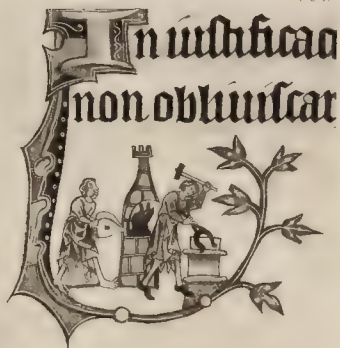 In iustificaci
non obliuiscar